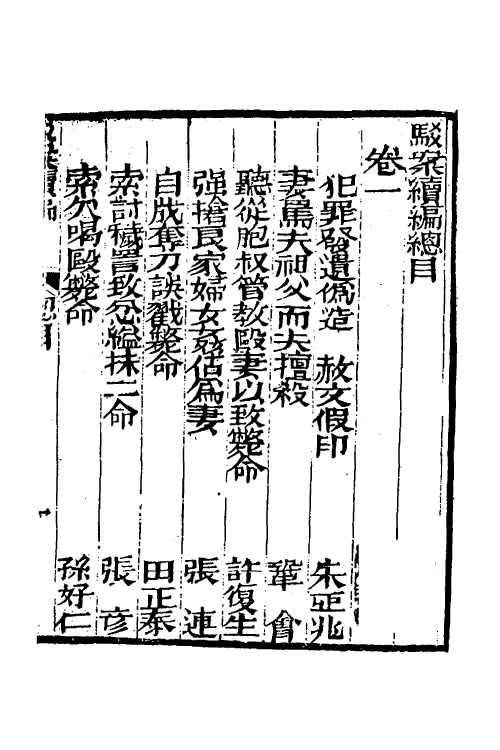 駁案續編總目
卷一
犯罪發遣偽造　赦文假印　朱亞兆
妻罵夫祖父而夫擅殺　鞏會
聽從胞叔管教毆妻以致斃命　許復生
强搶良家婦女姦佔為妻　張連
自戕奪刀誤戳斃命　田正泰
索討穢詈致忿縊抹二命　張彦
索欠喝毆斃命　孫好仁